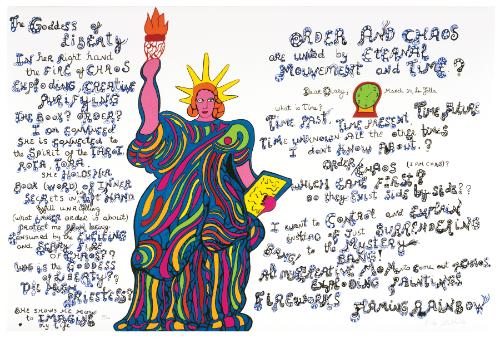 The Goddess of
LIBERTY
IN her Right hand
the FIRE OF CHAOS
EXPLODING, CREATIVE
PURIFYING
THE BOOK? ORDER?
I am CONVINCED
SHE is CONNECTED to
the Spirit of the TAROT,
ROTA, TORA.
SHE HOLDS HER
BOOK (WORD) of INNER
SECRETS IN left HAND
Still UNR
(what inner order is about)
PROTECT me from being
Consumed by the EXCITING
and SCARY FIRE
of CHAOS?
WHO is the GODDESS
OF LIBERTY?
THE HIGH
PRIESTESS?
SHE SHOWS ME HOW
to IMAGINE
my life
ORDER AND CHAOS
are UNITED by ETERNAL
MOUVEMENT and TIME?
Dear Gary,
March in La Jolla
what is Time?
TIME PAST, TIME PRESENT, TIME FUTURE
TIME UNKNOWN All the other times
I don't KNOW ABOUT.?
ORDER/CHAOS (I AM CHAOS?)
WHICH CAME FIRST?
Do they EXIST Side by Side??
I want to CONTROL and EXPLAIN
instead of Just SURRENDERING
to the MYSTERY
BANG! BANG!
All my CREATIVE MOMents come out of CHAOS.
EXPLODING PAINTINGS
FIREWORKS FLAMING RAINBOW